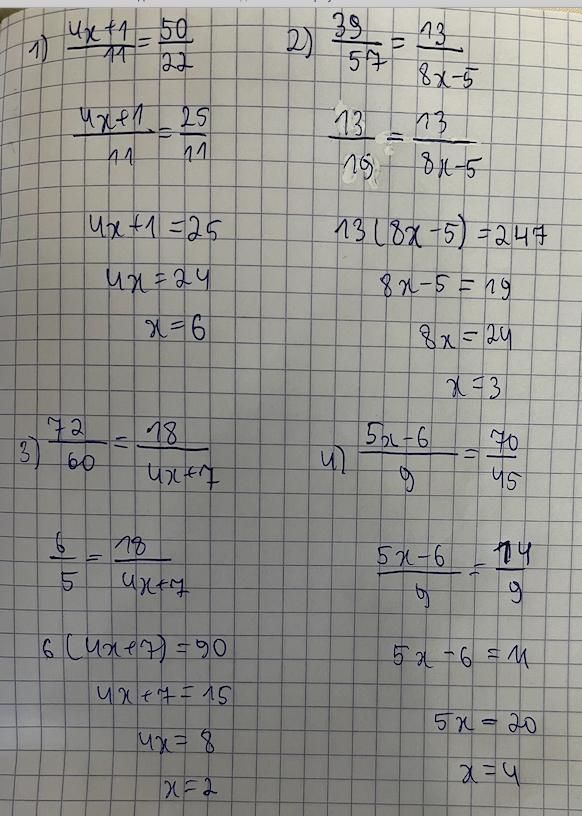 1) (4x+1)/11 = 50/22
(4x+1)/11 = 25/11
4x+1 = 25
4x = 24
x = 6
2) 39/57 = 13/(8x-5)
13/19 = 13/(8x-5)
13(8x-5) = 247
8x-5 = 19
8x = 24
x = 3
3) 72/60 = 18/(4x+7)
6/5 = 18/(4x+7)
6(4x+7) = 90
4x+7 = 15
4x = 8
x = 2
4) (5x-6)/9 = 70/45
(5x-6)/9 = 14/9
5x-6 = 14
5x = 20
x = 4